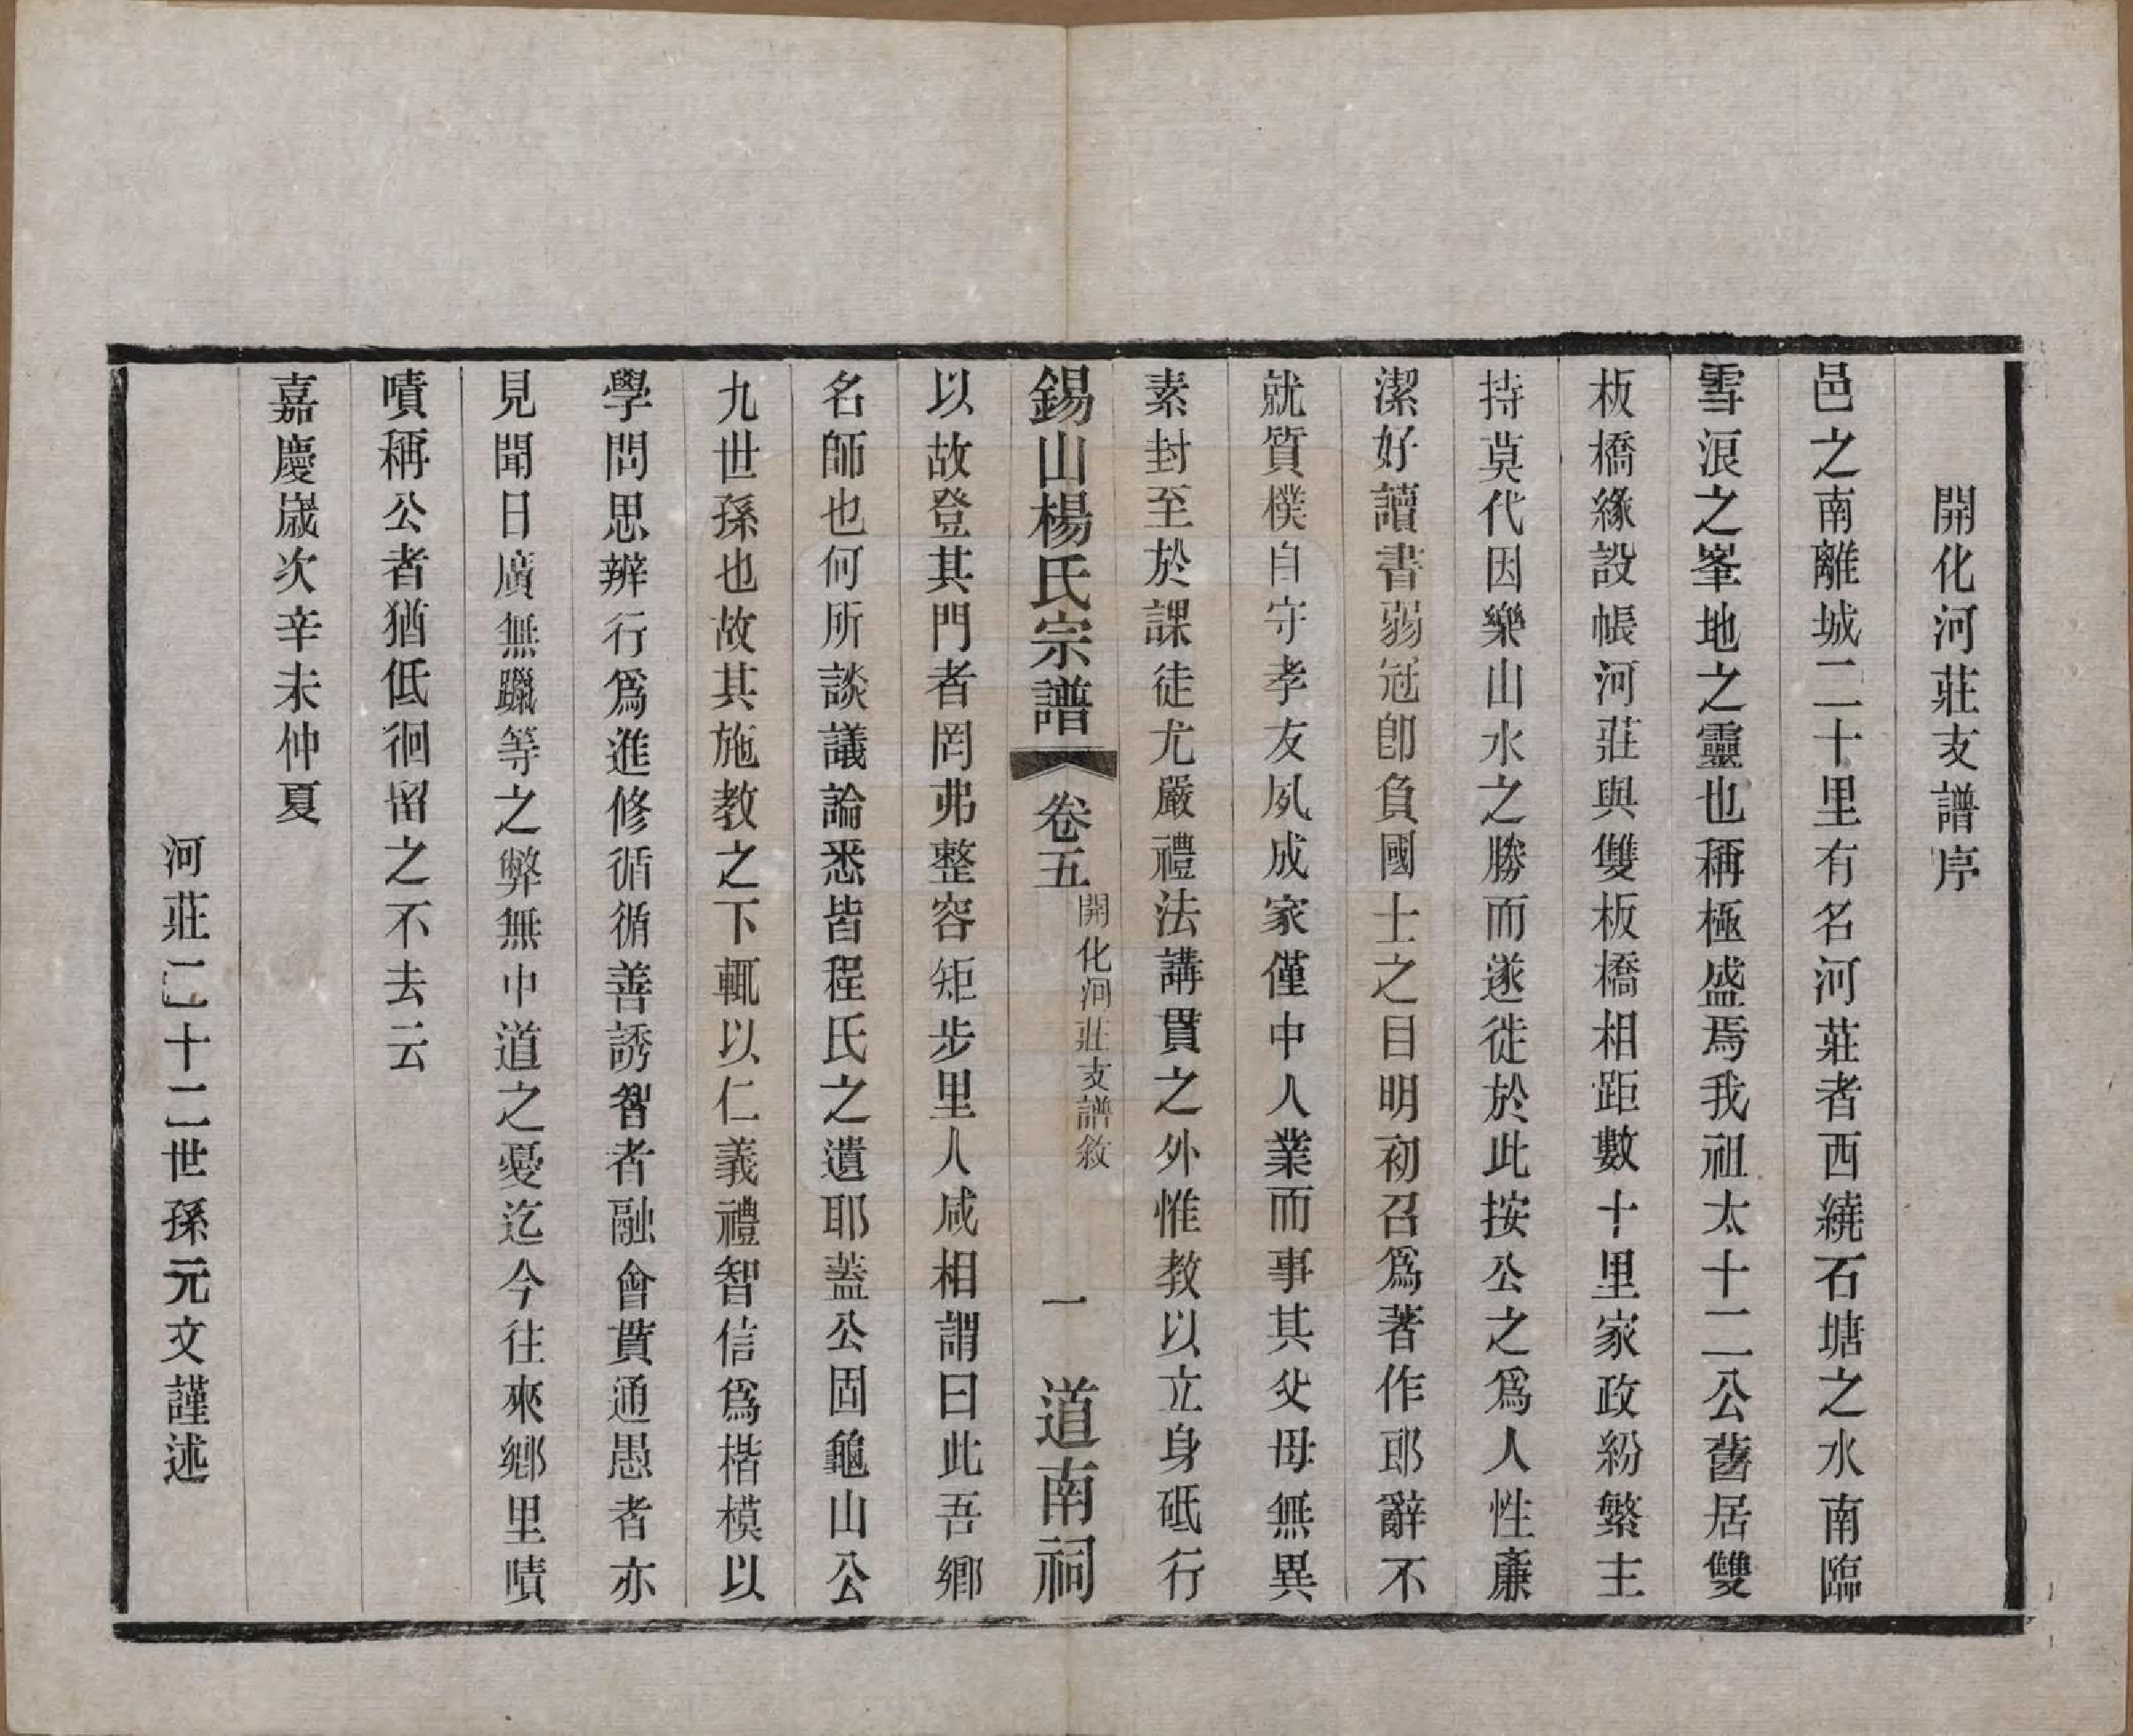 開化河莊支譜序
邑之南離城二十里有名河莊者西繞石塘之水南臨
雪浪之峯地之靈也稱極盛焉我祖太十二公舊居雙
板橋緣設帳河莊與雙板橋相距數十里家政紛繁主
持莫代因樂山水之勝而遂徙於此按公之爲人性廉
潔好讀書弱冠卽負國士之目明初召爲著作郎辭不
就質樸自守孝友夙成家僅中人業而事其父母無異
素封至於課徒尤嚴禮法講貫之外惟教以立身砥行
錫山楊氏宗譜 卷五 開化河莊支譜敘 一 道南祠
以故登其門者罔弗整容矩步里人咸相謂曰此吾鄉
名師也何所談議論悉皆程氏之遺耶蓋公固龜山公
九世孫也故其施教之下輒以仁義禮智信爲楷模以
學問思辨行爲進修循循善誘智者融會貫通愚者亦
見聞日廣無躐等之弊無中道之憂迄今往來鄉里嘖
嘖稱公者猶低徊留之不去云
嘉慶歲次辛未仲夏
河莊二十二世孫元文謹述